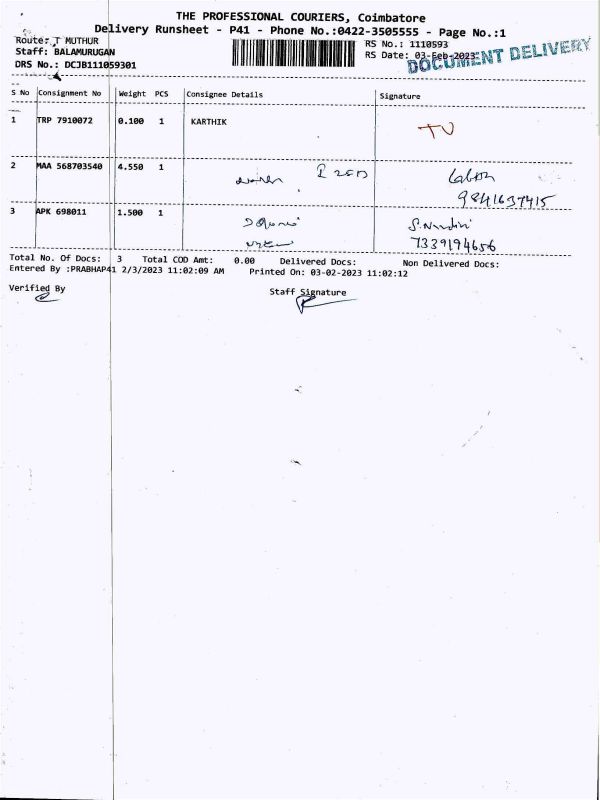 THE PROFESSIONAL COURIERS, Coimbatore
Delivery Runsheet - P41 - Phone No.:0422-3505555 - Page No.:1
Route: T MUTHUR
RS No.: 1110593
Staff: BALAMURUGAN
RS Date: 03-Feb-2023
DOCUMENT DELIVERY
DRS No.: DCJB111059301
S No Consignment No Weight PCS Consignee Details Signature
1 TRP 7910072 0.100 1 KARTHIK TV
2 MAA 568703540 4.550 1
9841637415
3 APK 698011 1.500 1 S. Nandini
7339194656
Total No. Of Docs: 3 Total COD Amt: 0.00 Delivered Docs: Non Delivered Docs:
Entered By :PRABHAP41 2/3/2023 11:02:09 AM Printed On: 03-02-2023 11:02:12
Verified By Staff Signature